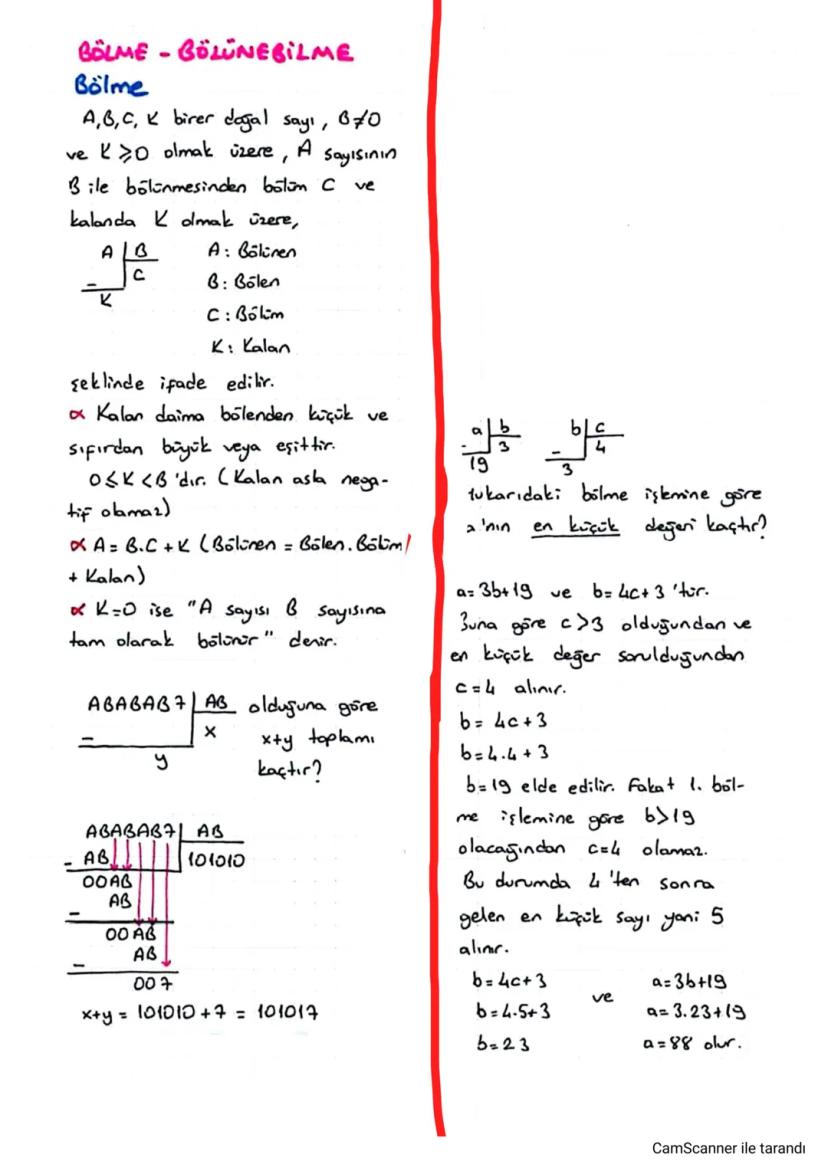 BÖLME - BÖLÜNEBİLME
Bölme
A,B,C, K birer doğal sayı, B≠0
ve K ⩾0 olmak üzere, A sayısının
B ile bölünmesinden bölüm C ve
kalanda K olmak üzere,
A | B
C
-
K
A: Bölünen
B: Bölen
C: Bölüm
K: Kalan
şeklinde ifade edilir.
α Kalan daima bölenden küçük ve
sıfırdan büyük veya eşittir.
0≤K<B 'dır. (Kalan asla nega-
tif olamaz)
α A= B.C + K (Bölünen = Bölen. Bölüm
+ Kalan)
α K=0 ise "A sayısı B sayısına
tam olarak bölünür" denir.
ABABAB7 | AB olduğuna göre
- x x+y toplamı
y kaçtır?
ABABAB7 | AB
- AB 101010
00AB
- AB
00AB
- AB
007
x+y = 101010 +7 = 101017
a | b b | c
- 3 - 4
19 3
Yukarıdaki bölme işlemine göre
a'nın en küçük değeri kaçtır?
a= 3b+19 ve b= 4c+3 'tür.
Buna göre c>3 olduğundan ve
en küçük değer sorulduğundan
c=4 alınır.
b= 4c+3
b=4.4+3
b=19 elde edilir. Fakat 1. böl-
me işlemine göre b>19
olacağından c=4 olamaz.
Bu durumda 4 'ten sonra
gelen en küçük sayı yani 5
alınır.
b= 4c+3 ve a=3b+19
b=4.5+3 a=3.23+19
b=23 a=88 olur.
CamScanner ile tarandı